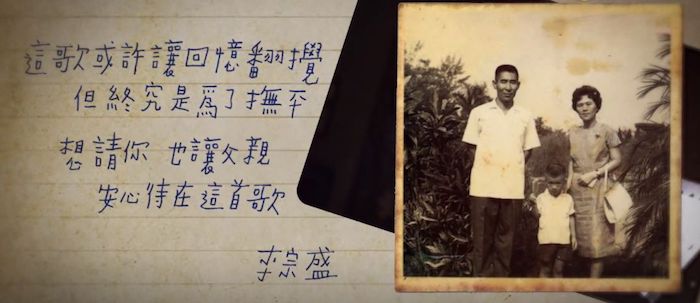 這歌或許讓回憶翻攪
但終究是為了撫平
想請你 也讓父親
安心待在這首歌
李宗盛